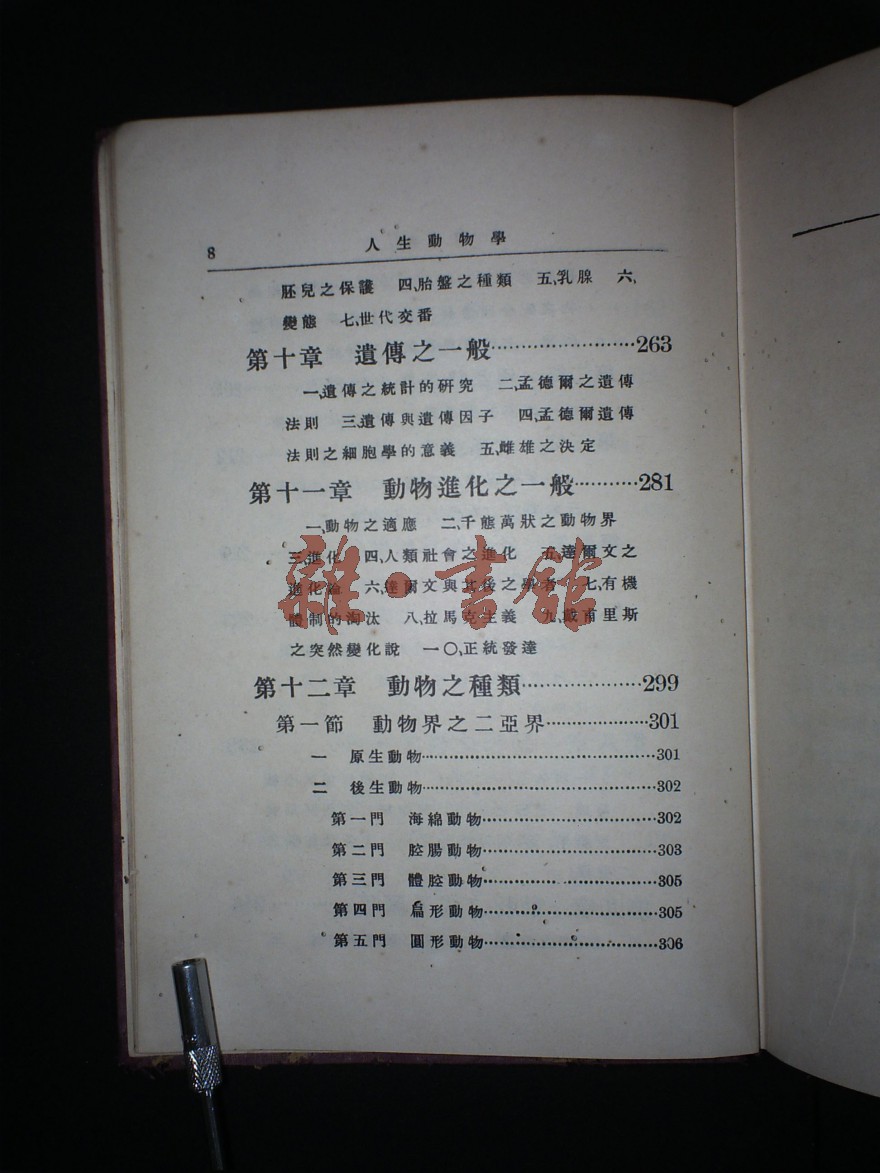 8
人生動物學
胚兒之保護 四、胎盤之種類 五、乳腺 六、
變態 七、世代交番
第十章 遺傳之一般……………………263
一、遺傳之統計的研究 二、孟德爾之遺傳
法則 三、遺傳與遺傳因子 四、孟德爾遺傳
法則之細胞學的意義 五、雌雄之決定
第十一章 動物進化之一般…………281
一、動物之適應 二、千態萬狀之動物界
三、進化 四、人類社會之進化 五、達爾文之
進化論 六、達爾文與其後之學者 七、有機
體制的淘汰 八、拉馬克主義 九、戴甫里斯
之突然變化說 一〇、正統發達
第十二章 動物之種類…………………299
第一節 動物界之二亞界………………301
一 原生動物……………………………………301
二 後生動物……………………………………302
第一門 海綿動物…………………………302
第二門 腔腸動物…………………………303
第三門 體腔動物…………………………305
第四門 扁形動物…………………………305
第五門 圓形動物…………………………306
雜·書館